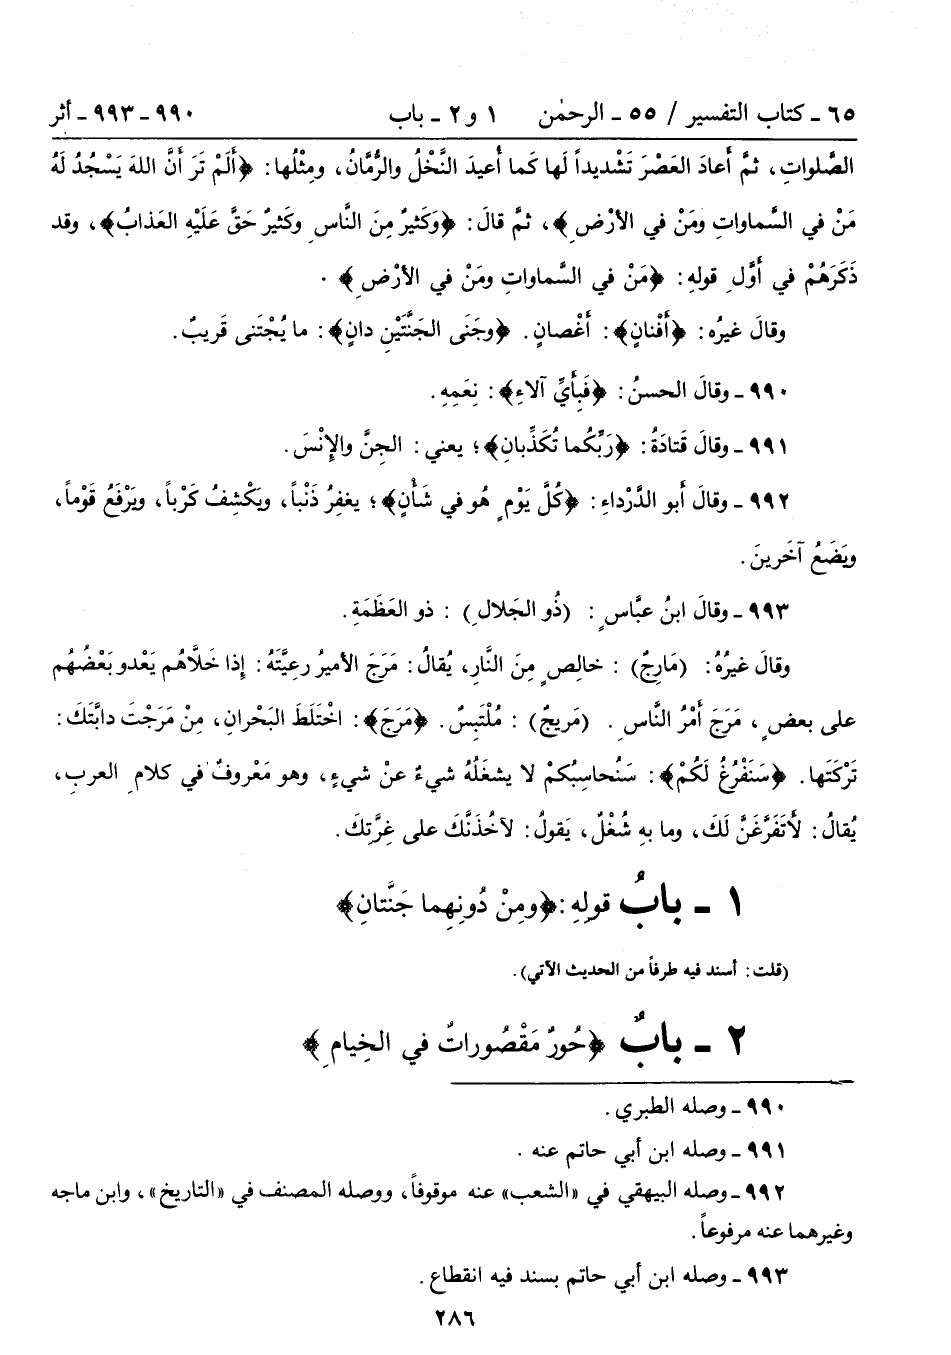 ٦٥ - كتاب التفسير / ٥٥ - الرحمٰن ١ و ٢ - باب ٩٩٠ - ٩٩٣ - أثر
الصَّلواتِ، ثمَّ أَعادَ العَصْرَ تَشْديداً لَها كَما أُعيدَ النَّخْلُ والرُّمَّانُ، ومِثْلُها: ﴿أَلَمْ تَرَ أَنَّ اللهَ يَسْجُدُ لَهُ
مَنْ في السَّماواتِ ومَنْ في الأرْضِ﴾، ثمَّ قالَ: ﴿وَكَثيرٌ مِنَ النَّاسِ وكَثيرٌ حَقَّ عَلَيْهِ العَذابُ﴾، وقد
ذَكَرَهُمْ في أَوَّلِ قولهِ: ﴿مَنْ في السَّماواتِ ومَنْ في الأرْضِ﴾ .
وقالَ غيرُه: ﴿أَفْنانٍ﴾: أَغْصانٍ. ﴿وجَنَى الجَنَّتَيْنِ دانٍ﴾: ما يُجْتَنى قَريبٌ.
٩٩٠ - وقالَ الحسنُ: ﴿فَبِأَيِّ آلاءِ﴾: نِعَمِهِ.
٩٩١ - وقالَ قَتادَةُ: ﴿رَبِّكُما تُكَذِّبانِ﴾؛ يعني: الجِنَّ والإِنْسَ.
٩٩٢ - وقالَ أَبو الدَّرْداءِ: ﴿كُلَّ يَوْمٍ هُو في شَأْنٍ﴾؛ يغفِرُ ذَنْباً، ويَكْشِفُ كَرْباً، ويَرْفَعُ قَوْماً،
ويَضَعُ آخَرينَ.
٩٩٣ - وقالَ ابنُ عبَّاسٍ: (ذُو الجَلالِ) : ذو العَظَمَةِ.
وقالَ غيرُهُ: (مَارِجٌ) : خالِصٍ مِنَ النَّارِ، يُقالُ: مَرَجَ الأميرُ رعِيَّتَهُ: إِذا خَلَّاهُم يَعْدو بَعْضُهُم
على بعضٍ، مَرَجَ أَمْرُ النَّاسِ. (مَريجٌ) : مُلْتَبِسٌ. ﴿مَرَجَ﴾: اخْتَلَطَ البَحْرانِ، مِنْ مَرَجْتَ دابَّتَكَ:
تَرْكَتَها. ﴿سَنَفْرُغُ لَكُمْ﴾: سَنُحاسِبُكمْ لا يشغَلُهُ شيءٌ عنْ شيءٍ، وهو مَعْروفٌ في كلامِ العربِ،
يُقالُ: لأَتَفَرَّغَنَّ لَكَ، وما بهِ شُغْلٌ، يَقولُ: لآخُذَنَّكَ على غِرَّتِكَ.
١ - بابُ قولِهِ: ﴿ومِنْ دُونِهِما جَنَّتانِ﴾
(قلت: أسند فيه طرفاً من الحديث الآتي).
٢ - بابٌ ﴿حُورٌ مَقْصُوراتٌ في الخِيامِ﴾
٩٩٠ - وصله الطبري.
٩٩١ - وصله ابن أبي حاتم عنه .
٩٩٢ - وصله البيهقي في «الشعب» عنه موقوفاً، ووصله المصنف في «التاريخ»، وابن ماجه
وغيرهما عنه مرفوعاً.
٩٩٣ - وصله ابن أبي حاتم بسند فيه انقطاع.
٢٨٦